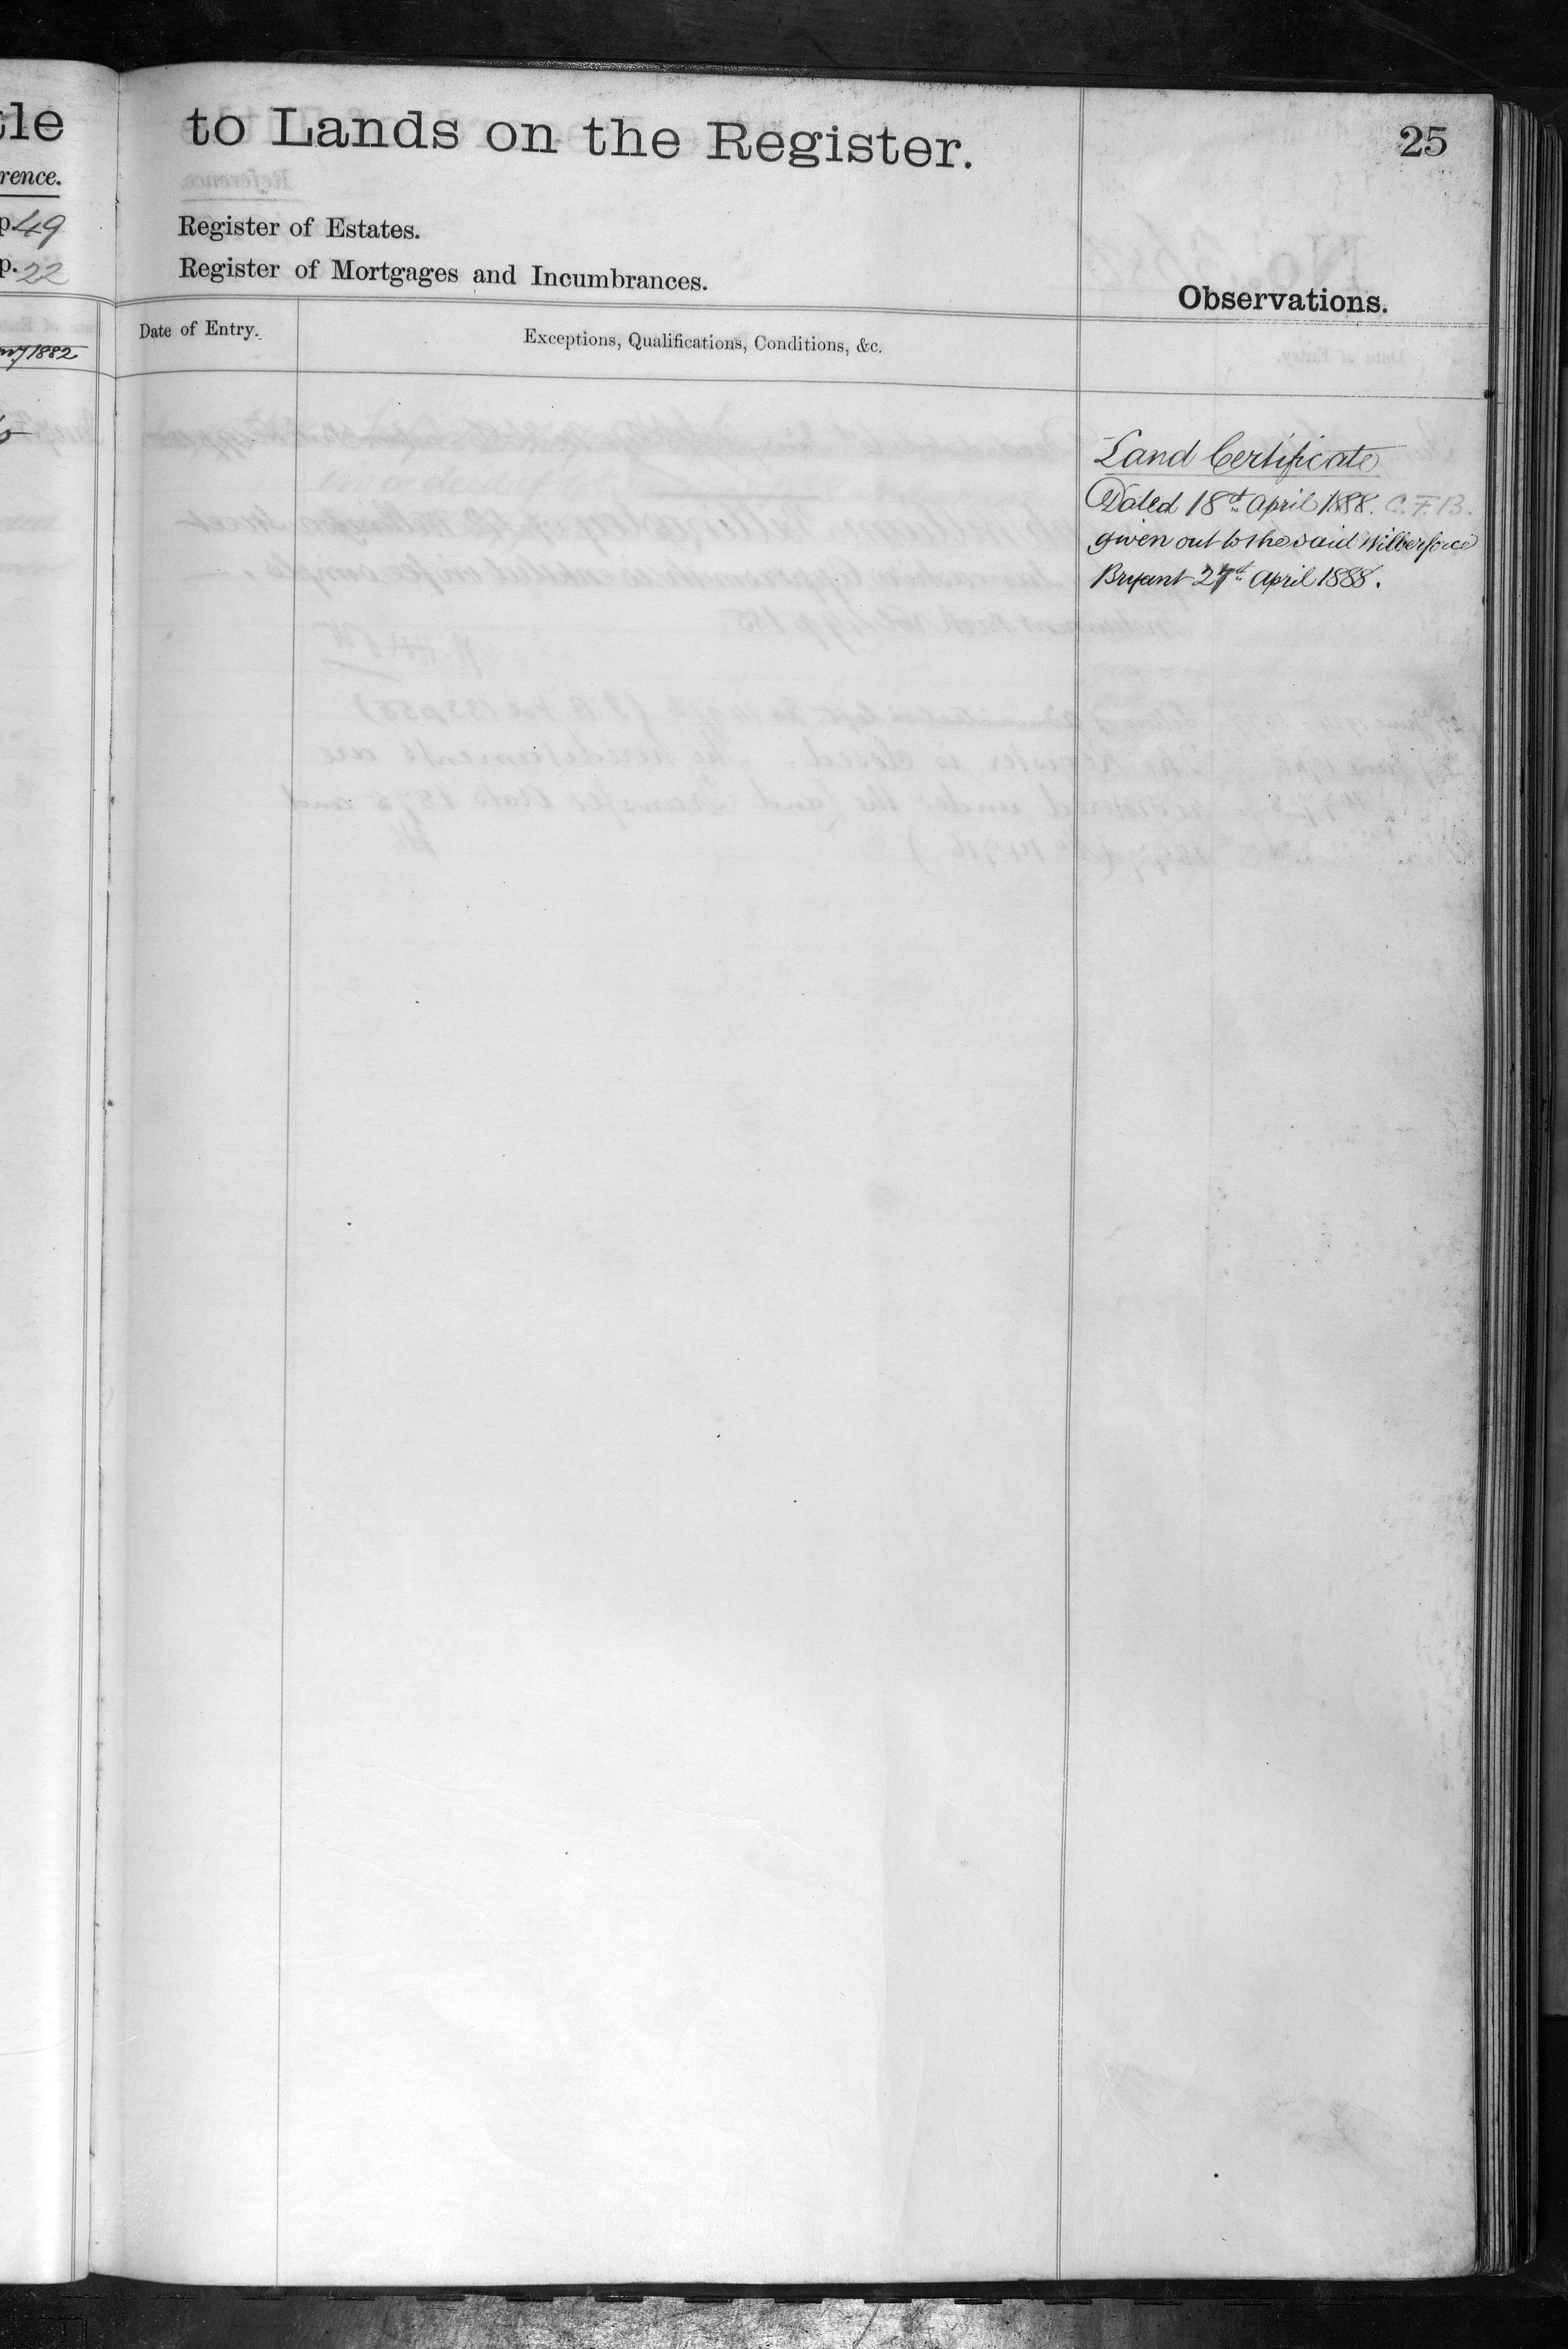 tle
rence.
p. 49
p. 22
1882
to Lands on the Register.
25
Register of Estates.
Register of Mortgages and Incumbrances.
Observations.
Date of Entry.
Exceptions, Qualifications, Conditions, &c.
Land Certificate
Dated 18th April 1888. C.F.B.
given out to the said Wilberforce
Bryant 27th April 1888.